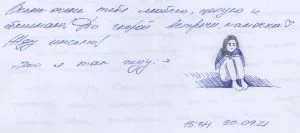 Очень-очень тебя люблю, целую и
обнимаю, До скорой встречи, мамочка♡
Жду письмо!
Это я так сижу →
15:34 30.09.21